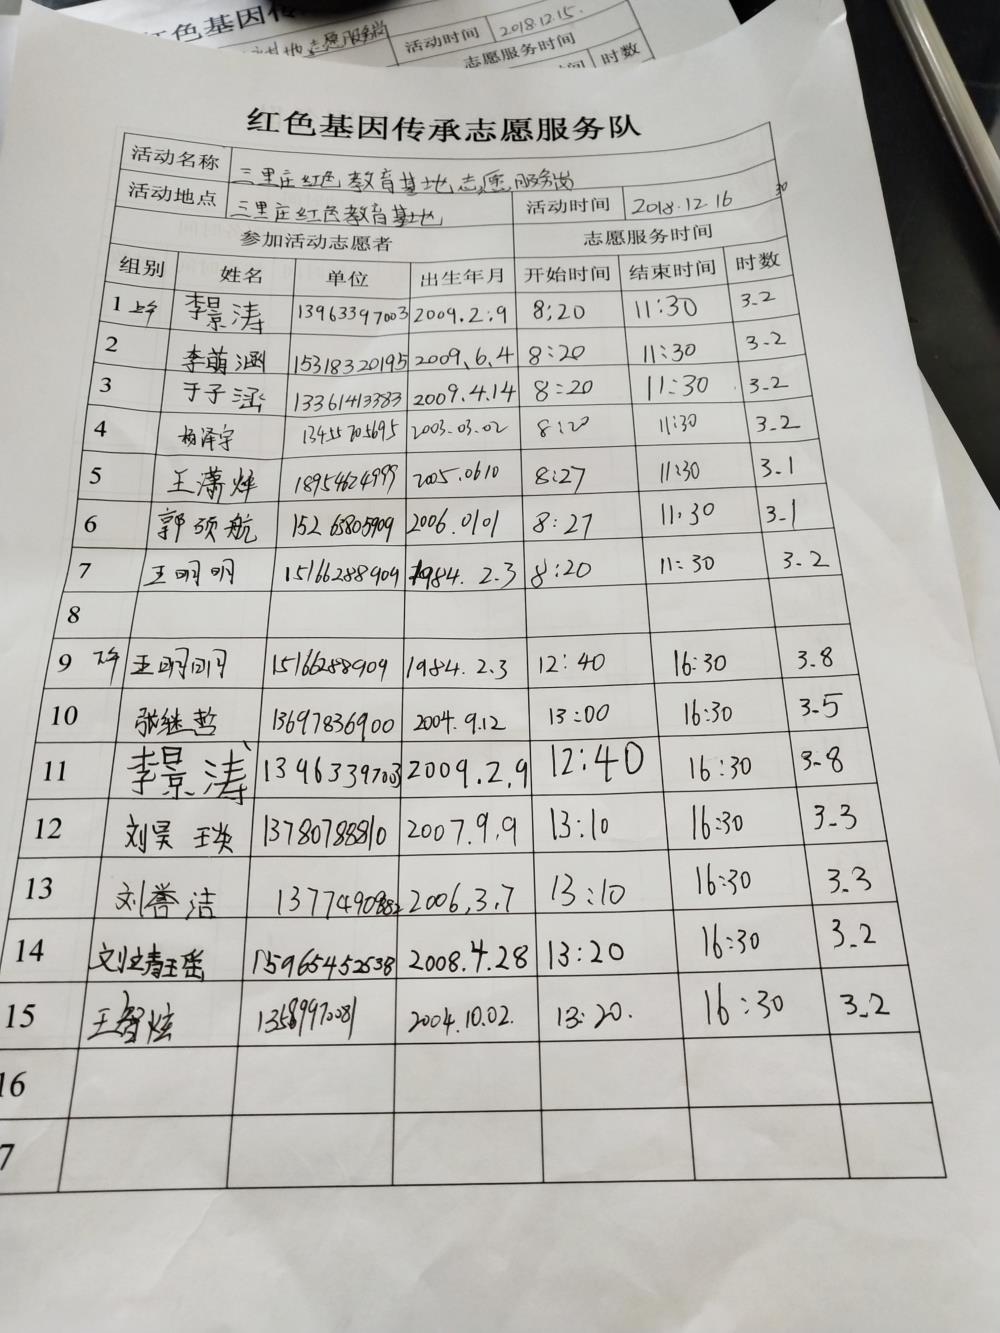 红色基因传
志愿服务岗 活动时间 2018.12.15.
志愿服务时间
时数
红色基因传承志愿服务队
活动名称 三里庄红色教育基地志愿服务岗
活动地点 三里庄红色教育基地 活动时间 2018.12.16
参加活动志愿者 志愿服务时间
组别 姓名 单位 出生年月 开始时间 结束时间 时数
1 上午 李景涛 13963397003 2009.2.9 8:20 11:30 3.2
2 李萌涵 15318320195 2009.6.4 8:20 11:30 3.2
3 于子涵 13361413383 2009.4.14 8:20 11:30 3.2
4 杨泽宇 13455705695 2003.03.02 8:20 11:30 3.2
5 王潇烨 18954624999 2005.0610 8:27 11:30 3.1
6 郭硕航 15265805909 2006.0101 8:27 11:30 3.1
7 王明明 15166288909 1984.2.3 8:20 11:30 3.2
8
9 下午 王明明 15166288909 1984.2.3 12:40 16:30 3.8
10 张继哲 13697836900 2004.9.12 13:00 16:30 3.5
11 李景涛 13963397003 2009.2.9 12:40 16:30 3.8
12 刘昊 13780788810 2007.9.9 13:10 16:30 3.3
13 刘誉洁 2006.3.7 13:10 16:30 3.3
14 刘靖瑶 15965452538 2008.4.28 13:20 16:30 3.2
15 王智炫 13589970081 2004.10.02. 13:20. 16:30 3.2
16
7